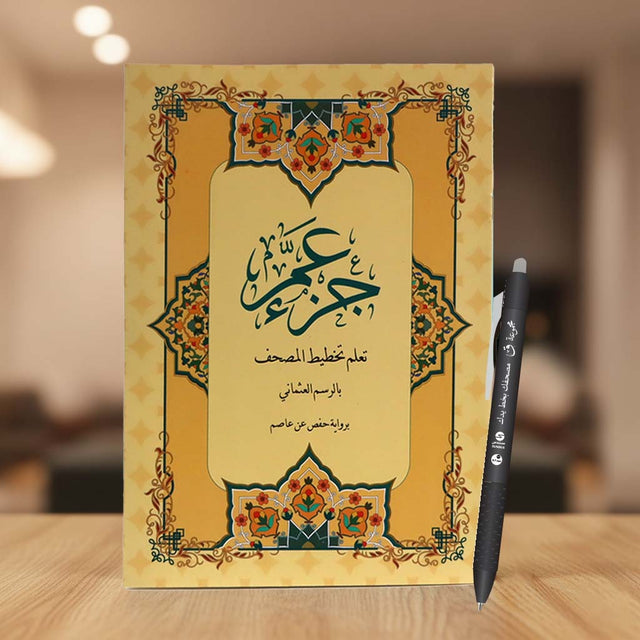 جزء عمّ
تعلم تخطيط المصحف
بالرسم العثماني
برواية حفص عن عاصم
مجموعة ق مصحفك بخط يدك